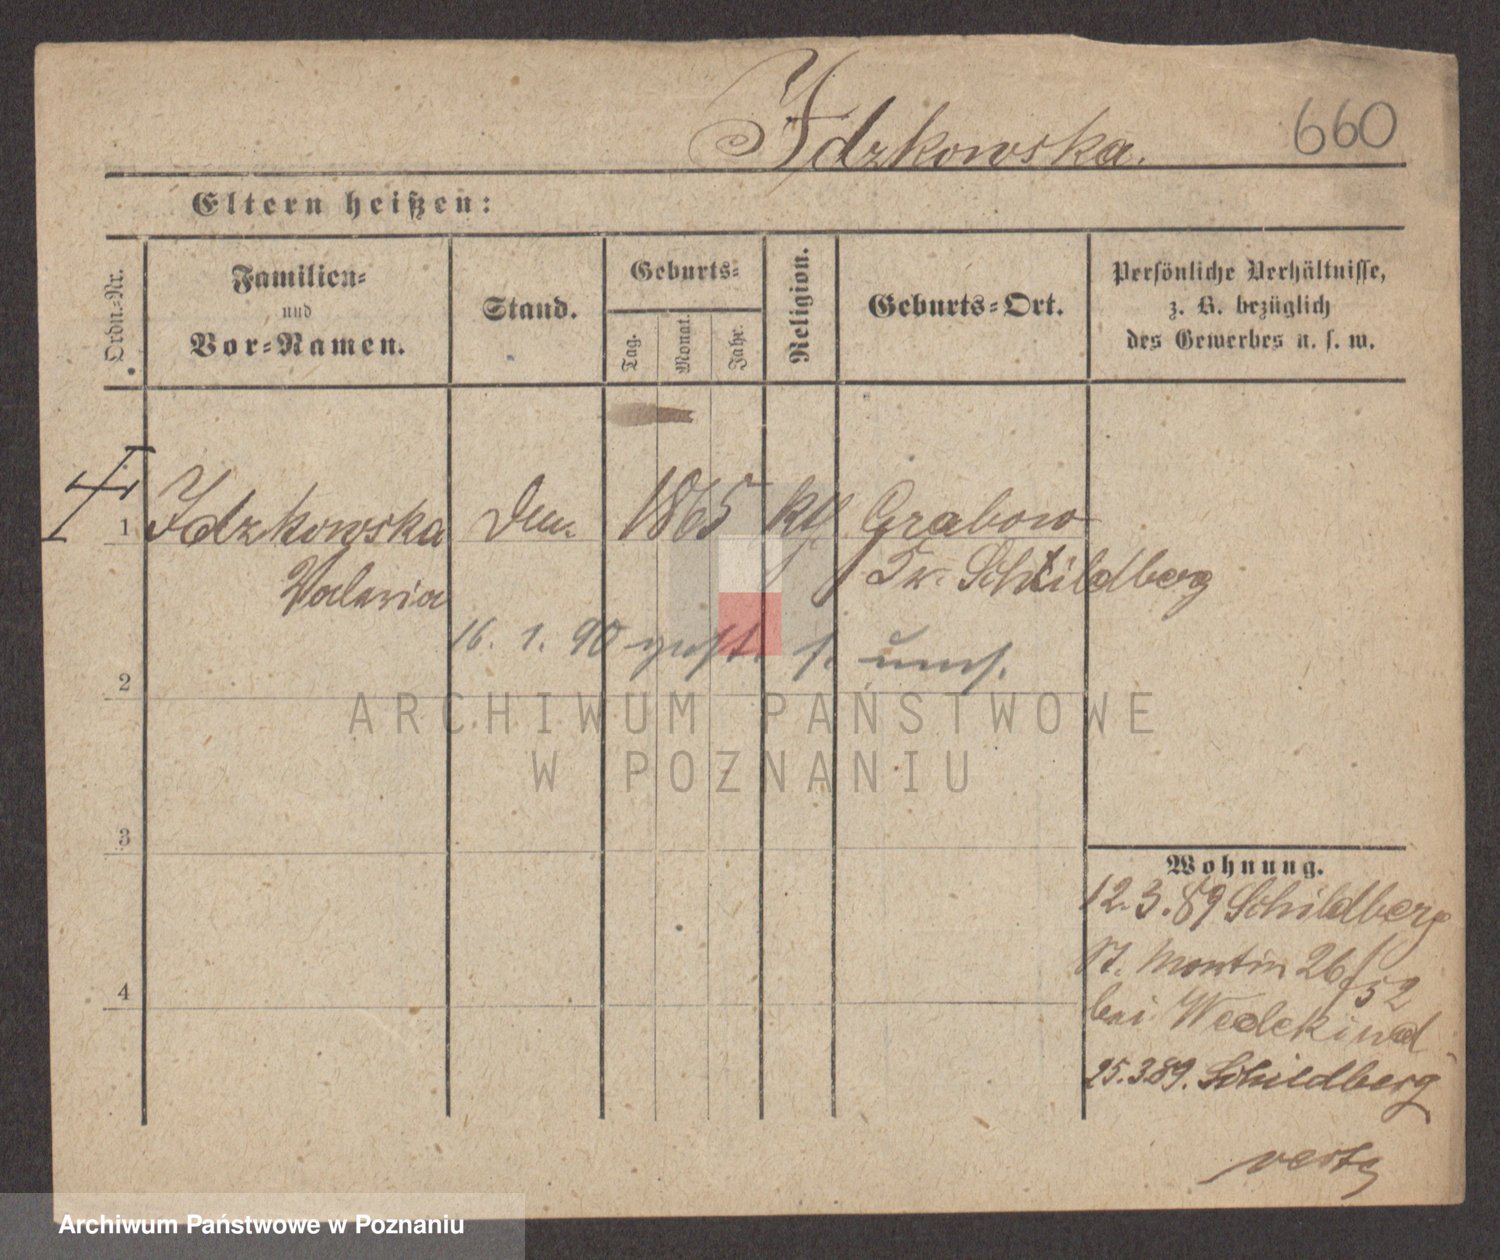 Idzkowska.
660
Eltern heißen:
Ordn.-Nr.
Familien-
und
Vor-Namen.
Stand.
Geburts-
Tag.
Monat.
Jahr.
Religion.
Geburts-Ort.
Persönliche Verhältnisse,
z. B. bezüglich
des Gewerbes u. s. w.
1 Idzkowska 1865 kf Grabow
Valeria Kr. Schildberg
16. 1. 90
2
3
4
Wohnung.
12.3.89 Schildberg
St. Martin 26/52
bei Wedekind
25.3.89. Schildberg
ARCHIWUM PAŃSTWOWE
W POZNANIU
Archiwum Państwowe w Poznaniu